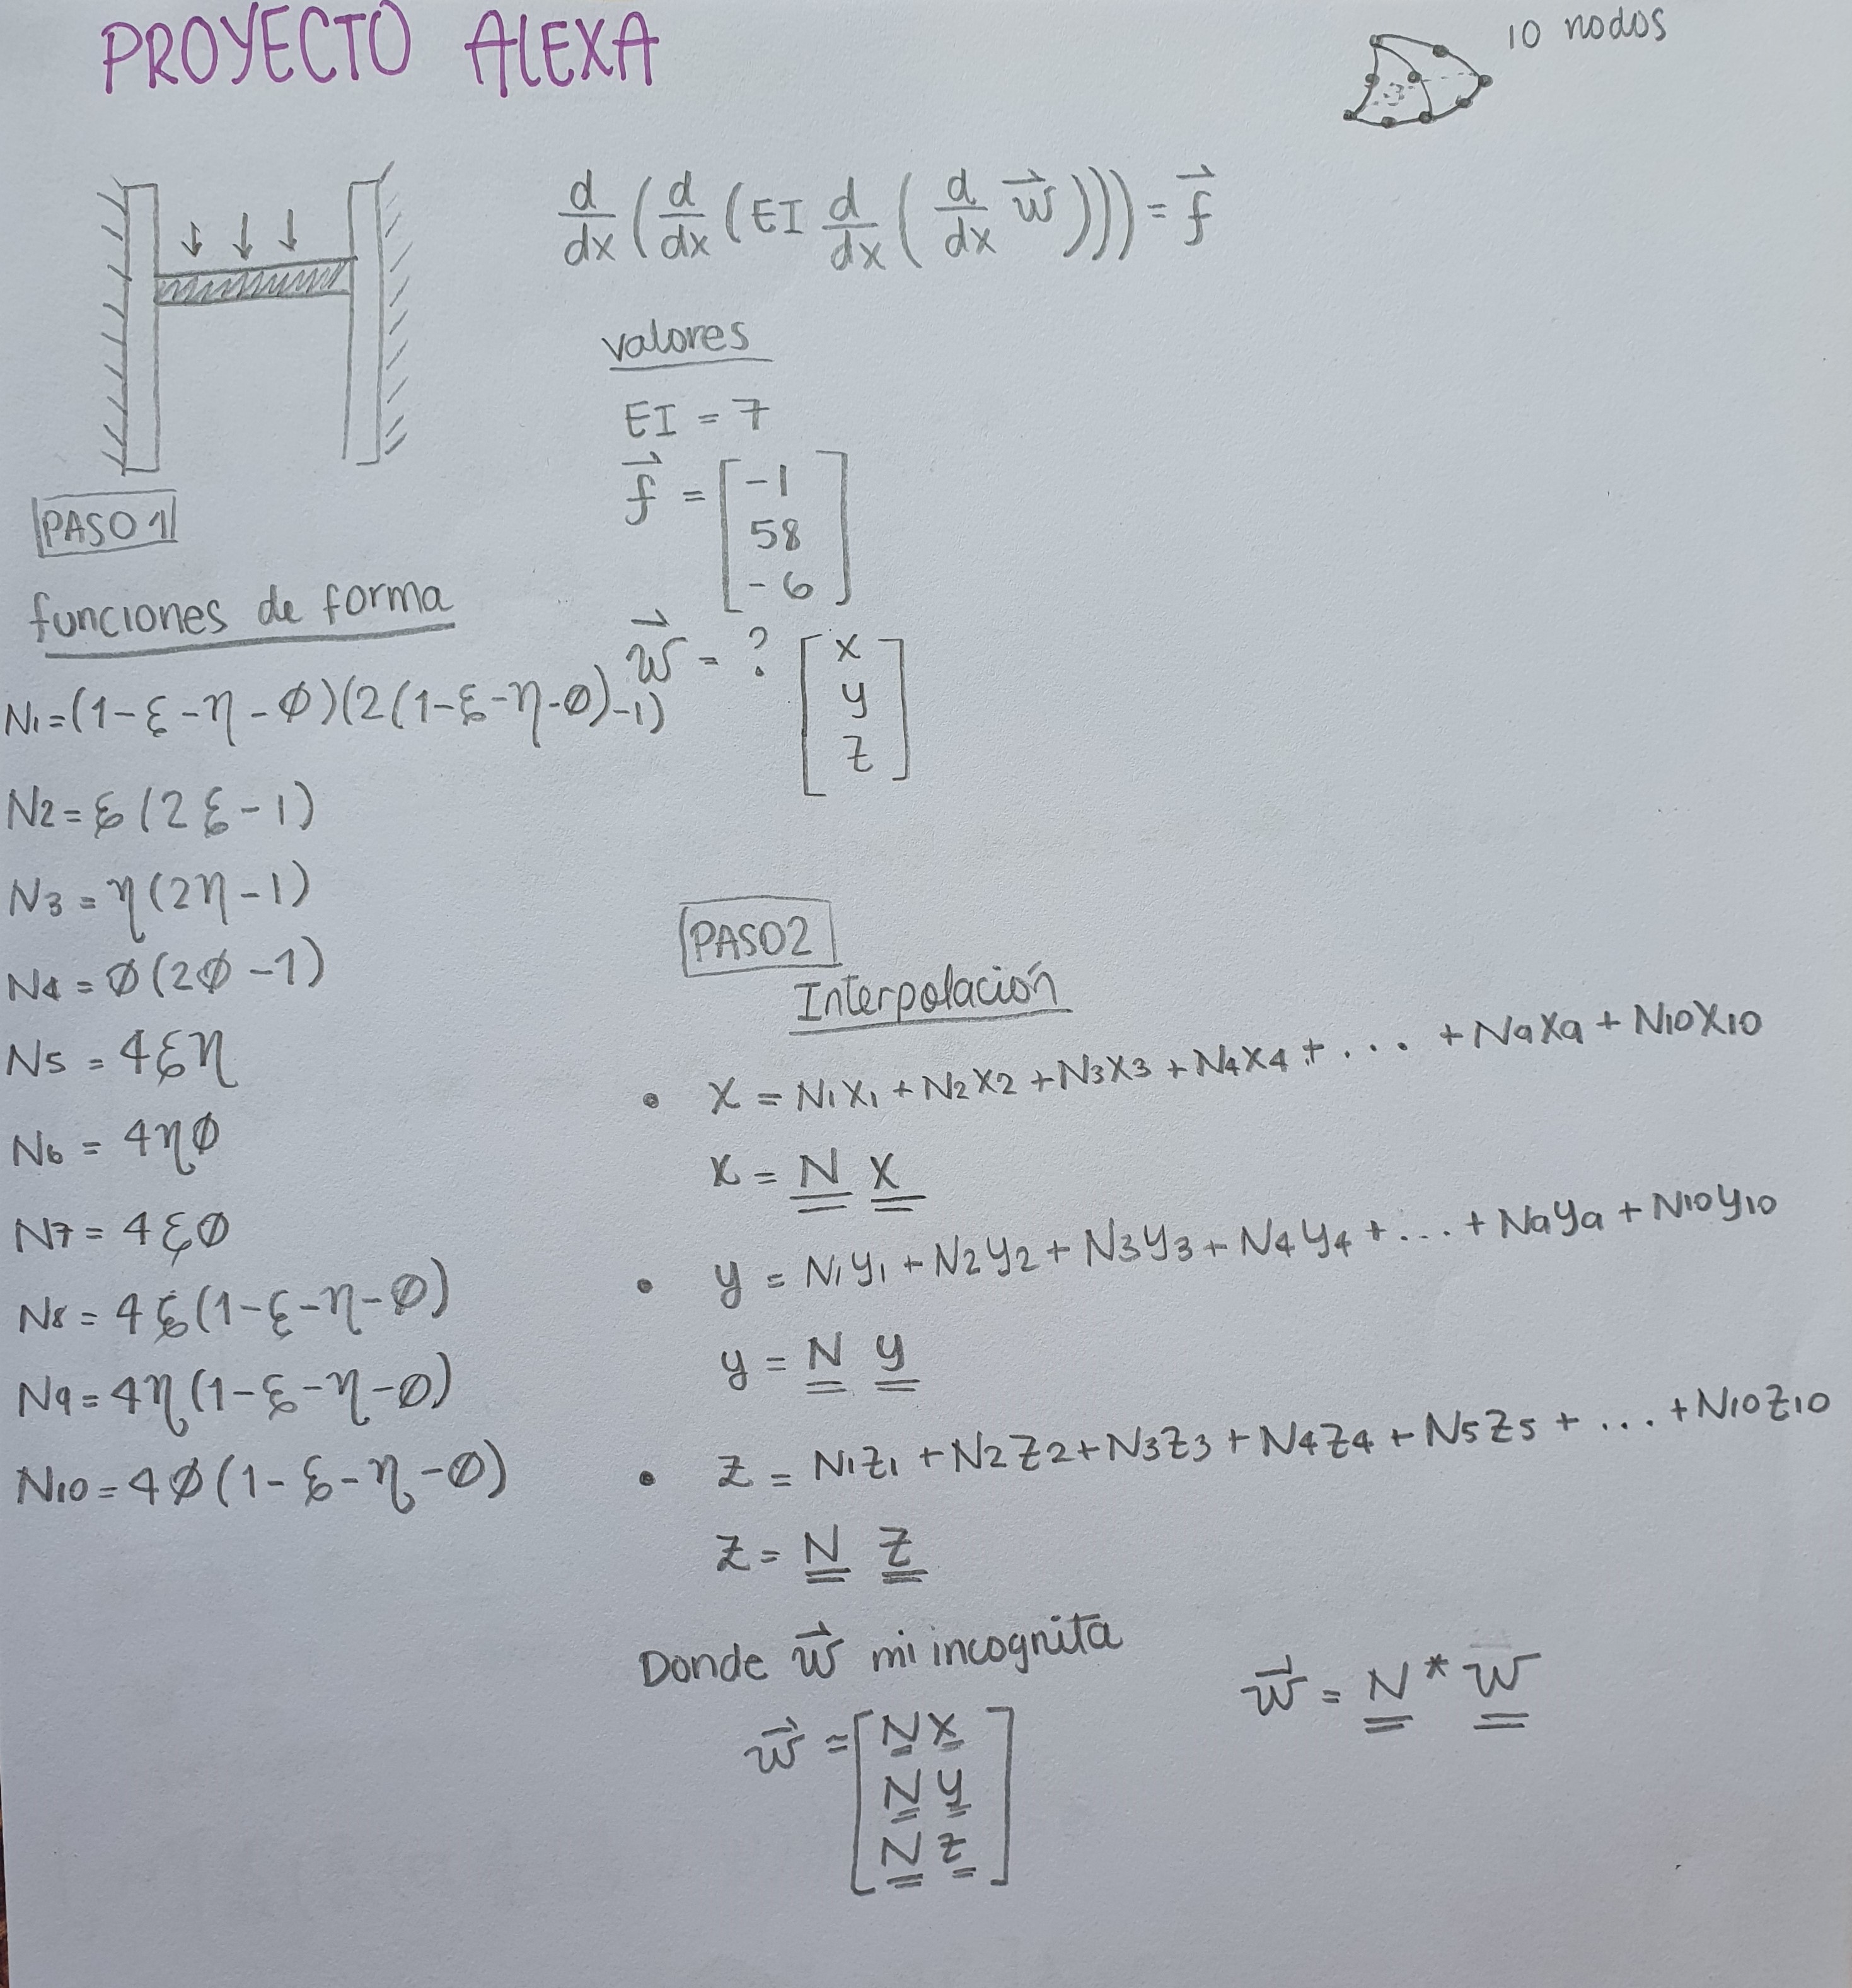 PROYECTO ALEXA
10 nodos
d/dx (d/dx (EI d/dx (d/dx w⃗))) = f⃗
valores
EI = 7
f⃗ = [-1
58
-6]
w⃗ = ? [x
y
z]
PASO 1
funciones de forma
N1=(1-ξ-η-∅)(2(1-ξ-η-∅)-1)
N2=ξ(2ξ-1)
N3=η(2η-1)
N4=∅(2∅-1)
N5=4ξη
N6=4η∅
N7=4ξ∅
N8=4ξ(1-ξ-η-∅)
N9=4η(1-ξ-η-∅)
N10=4∅(1-ξ-η-∅)
PASO2
Interpolación
• X = N1X1 + N2X2 + N3X3 + N4X4 + ... + N9X9 + N10X10
X = N X
• y = N1y1 + N2y2 + N3y3 + N4y4 + ... + N9y9 + N10y10
y = N y
• z = N1z1 + N2z2 + N3z3 + N4z4 + N5z5 + ... + N10z10
z = N z
Donde w⃗ mi incognita
w⃗ = [N X
N y
N z]
w⃗ = N * w